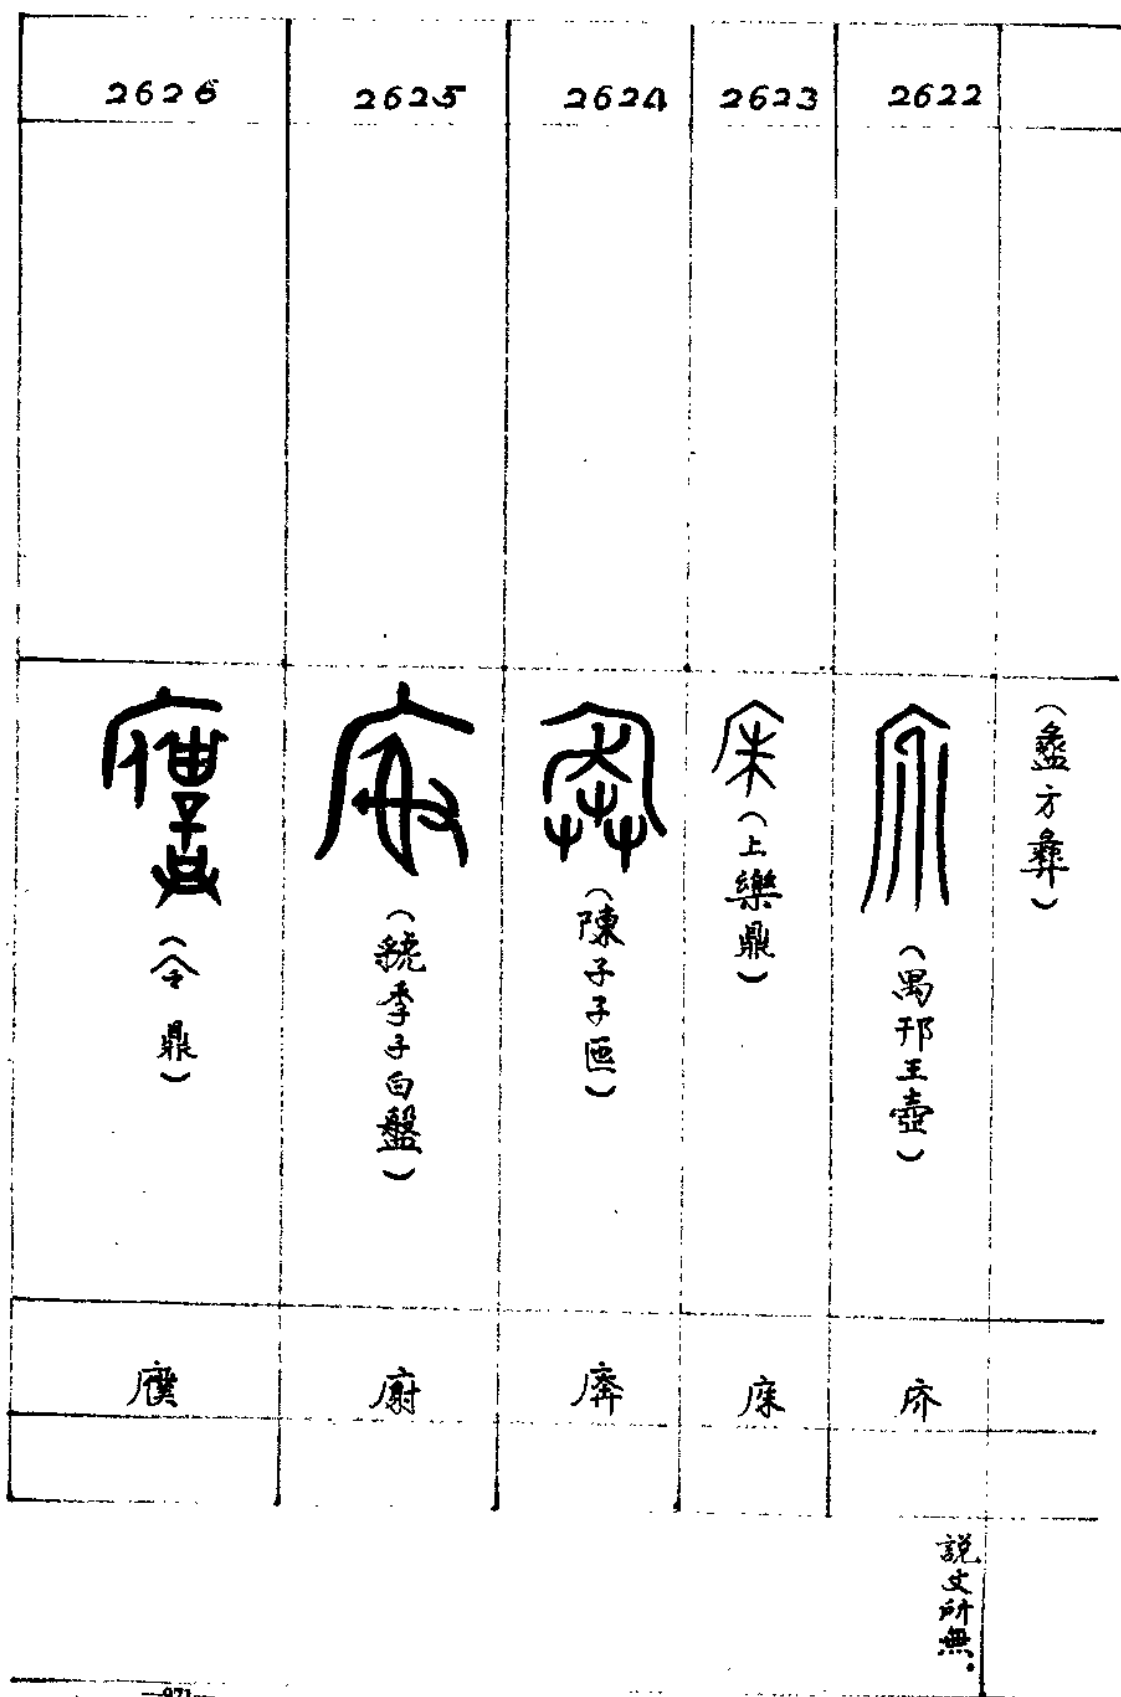 (盠方彝)
2622
(禺邗王壺)
㡴
說文所無.
2623
(上樂鼎)
床
2624
(陳子子匜)
2625
(虢季子白盤)
廚
2626
(令鼎)